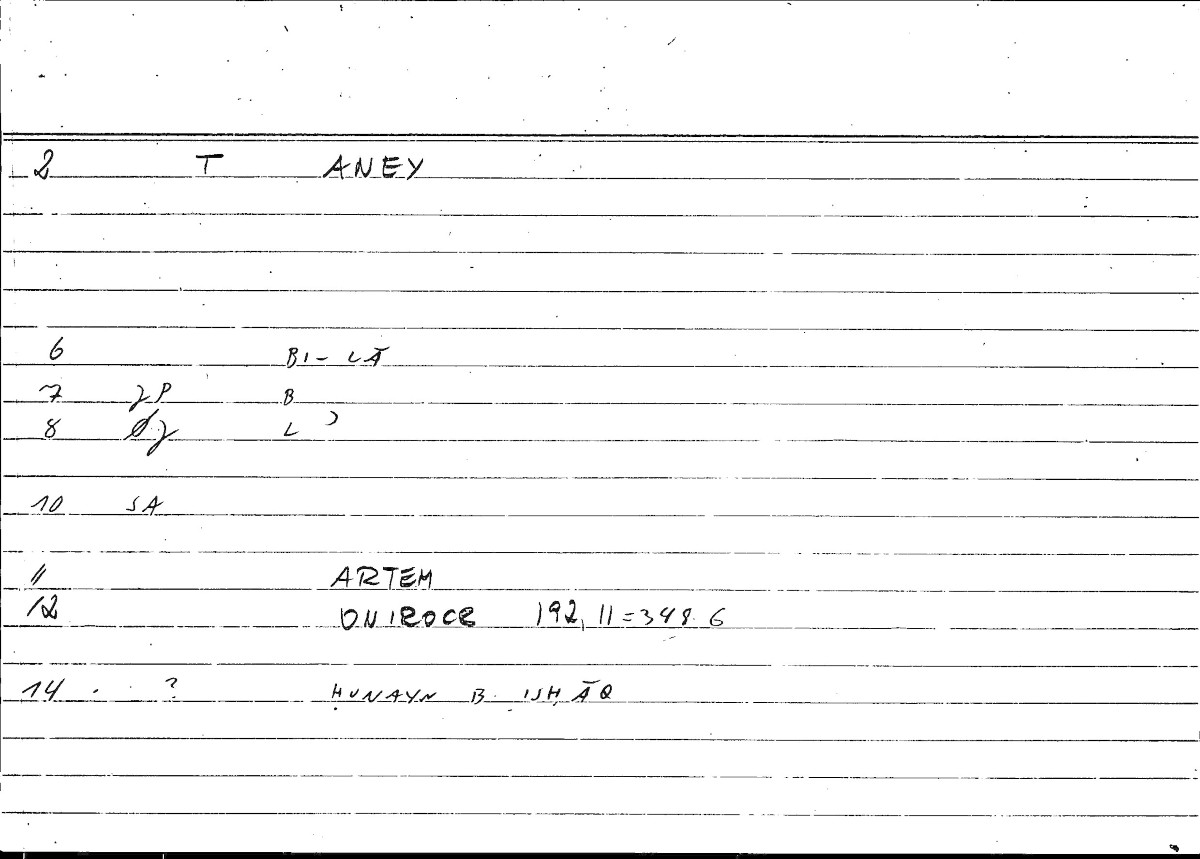 2 T ANEY
6 BI- LĀ
7 γP B
8 γ L ʾ
10 SA
11 ARTEM
12 ONIROCR 192, 11=348. 6
14 ? ḤUNAYN B. ISḤĀQ